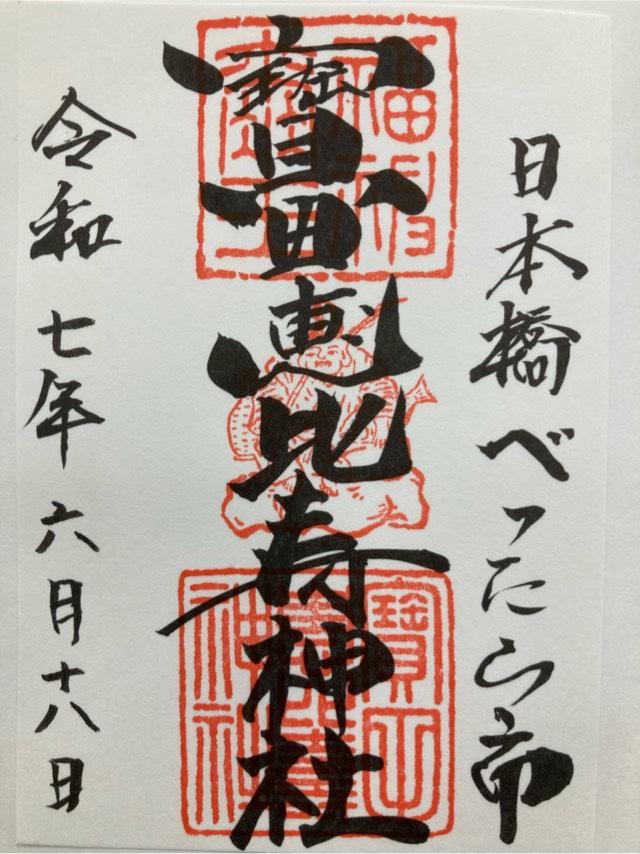 日本橋べったら市
寶田恵比寿神社
令和七年六月十八日